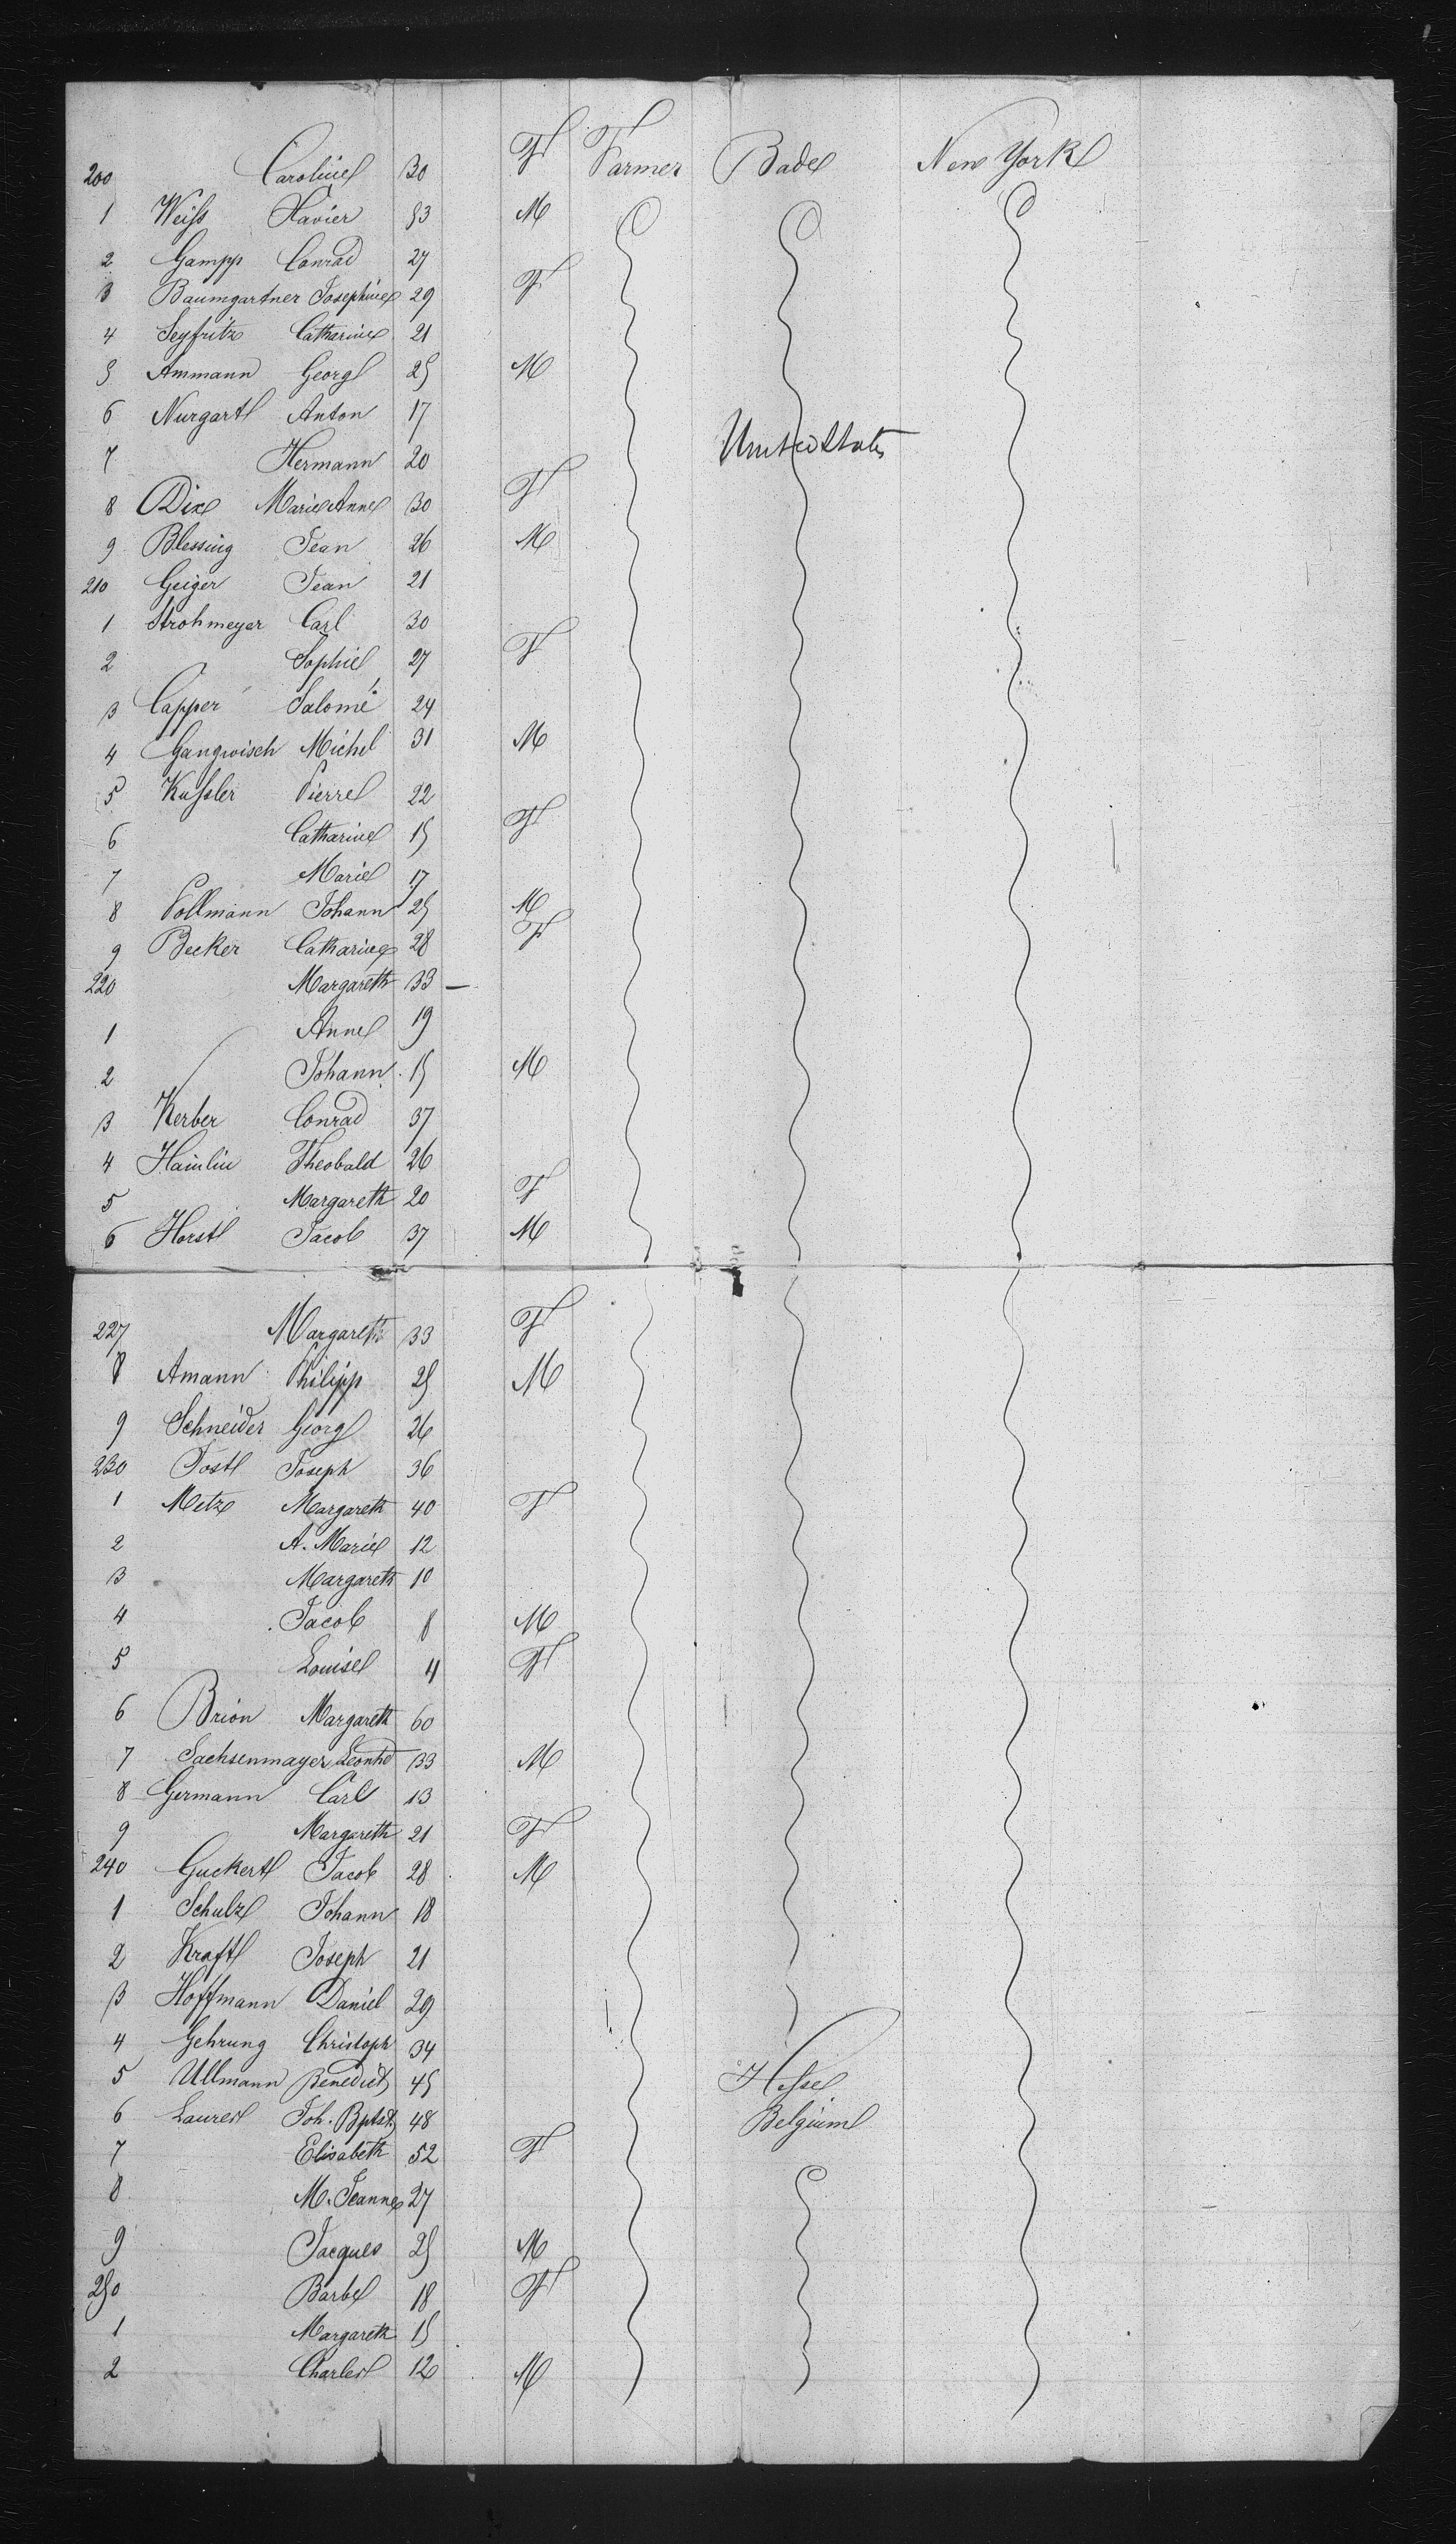 200 Caroline 30 F Farmer Bade New York
1 Weiss Xavier 53 M
2 Gampp Conrad 27
3 Baumgartner Josephine 29 F
4 Seyfritz Catharine 21
5 Ammann Georg 25 M
6 Nurgart Anton 17
7 Hermann 20 United States
8 Dix Marie Anne 30 F
9 Blessing Jean 26 M
210 Geiger Jean 21
1 Strohmeyer Carl 30
2 Sophie 27 F
3 Capper Salomé 24
4 Gangwisch Michel 31 M
5 Kassler Pierre 22
6 Catharine 15 F
7 Marie 17
8 Pollmann Johann 25 M
9 Becker Catharine 28 F
220 Margareth 33 —
1 Anne 19
2 Johann 15 M
3 Kerber Conrad 37
4 Hainlin Theobald 26
5 Margareth 20 F
6 Horst Jacob 37 M
227 Margareth 33 F
8 Amann Philipp 25 M
9 Schneider Georg 26
230 Jost Joseph 36
1 Metz Margareth 40 F
2 A. Marie 12
3 Margareth 10
4 Jacob 8 M
5 Louise 4 F
6 Brion Margareth 60
7 Sachsenmayer Leonhd 33 M
8 Germann Carl 13
9 Margareth 21 F
240 Guckert Jacob 28 M
1 Schulz Johann 18
2 Kraft Joseph 21
3 Hoffmann Daniel 29
4 Gehrung Christoph 34
5 Ullmann Benedict 45 Hesse
6 Laurent Joh. Bptst. 48 Belgium
7 Elisabeth 52 F
8 M. Jeanne 27
9 Jacques 25 M
250 Barbe 18 F
1 Margareth 15
2 Charles 12 M